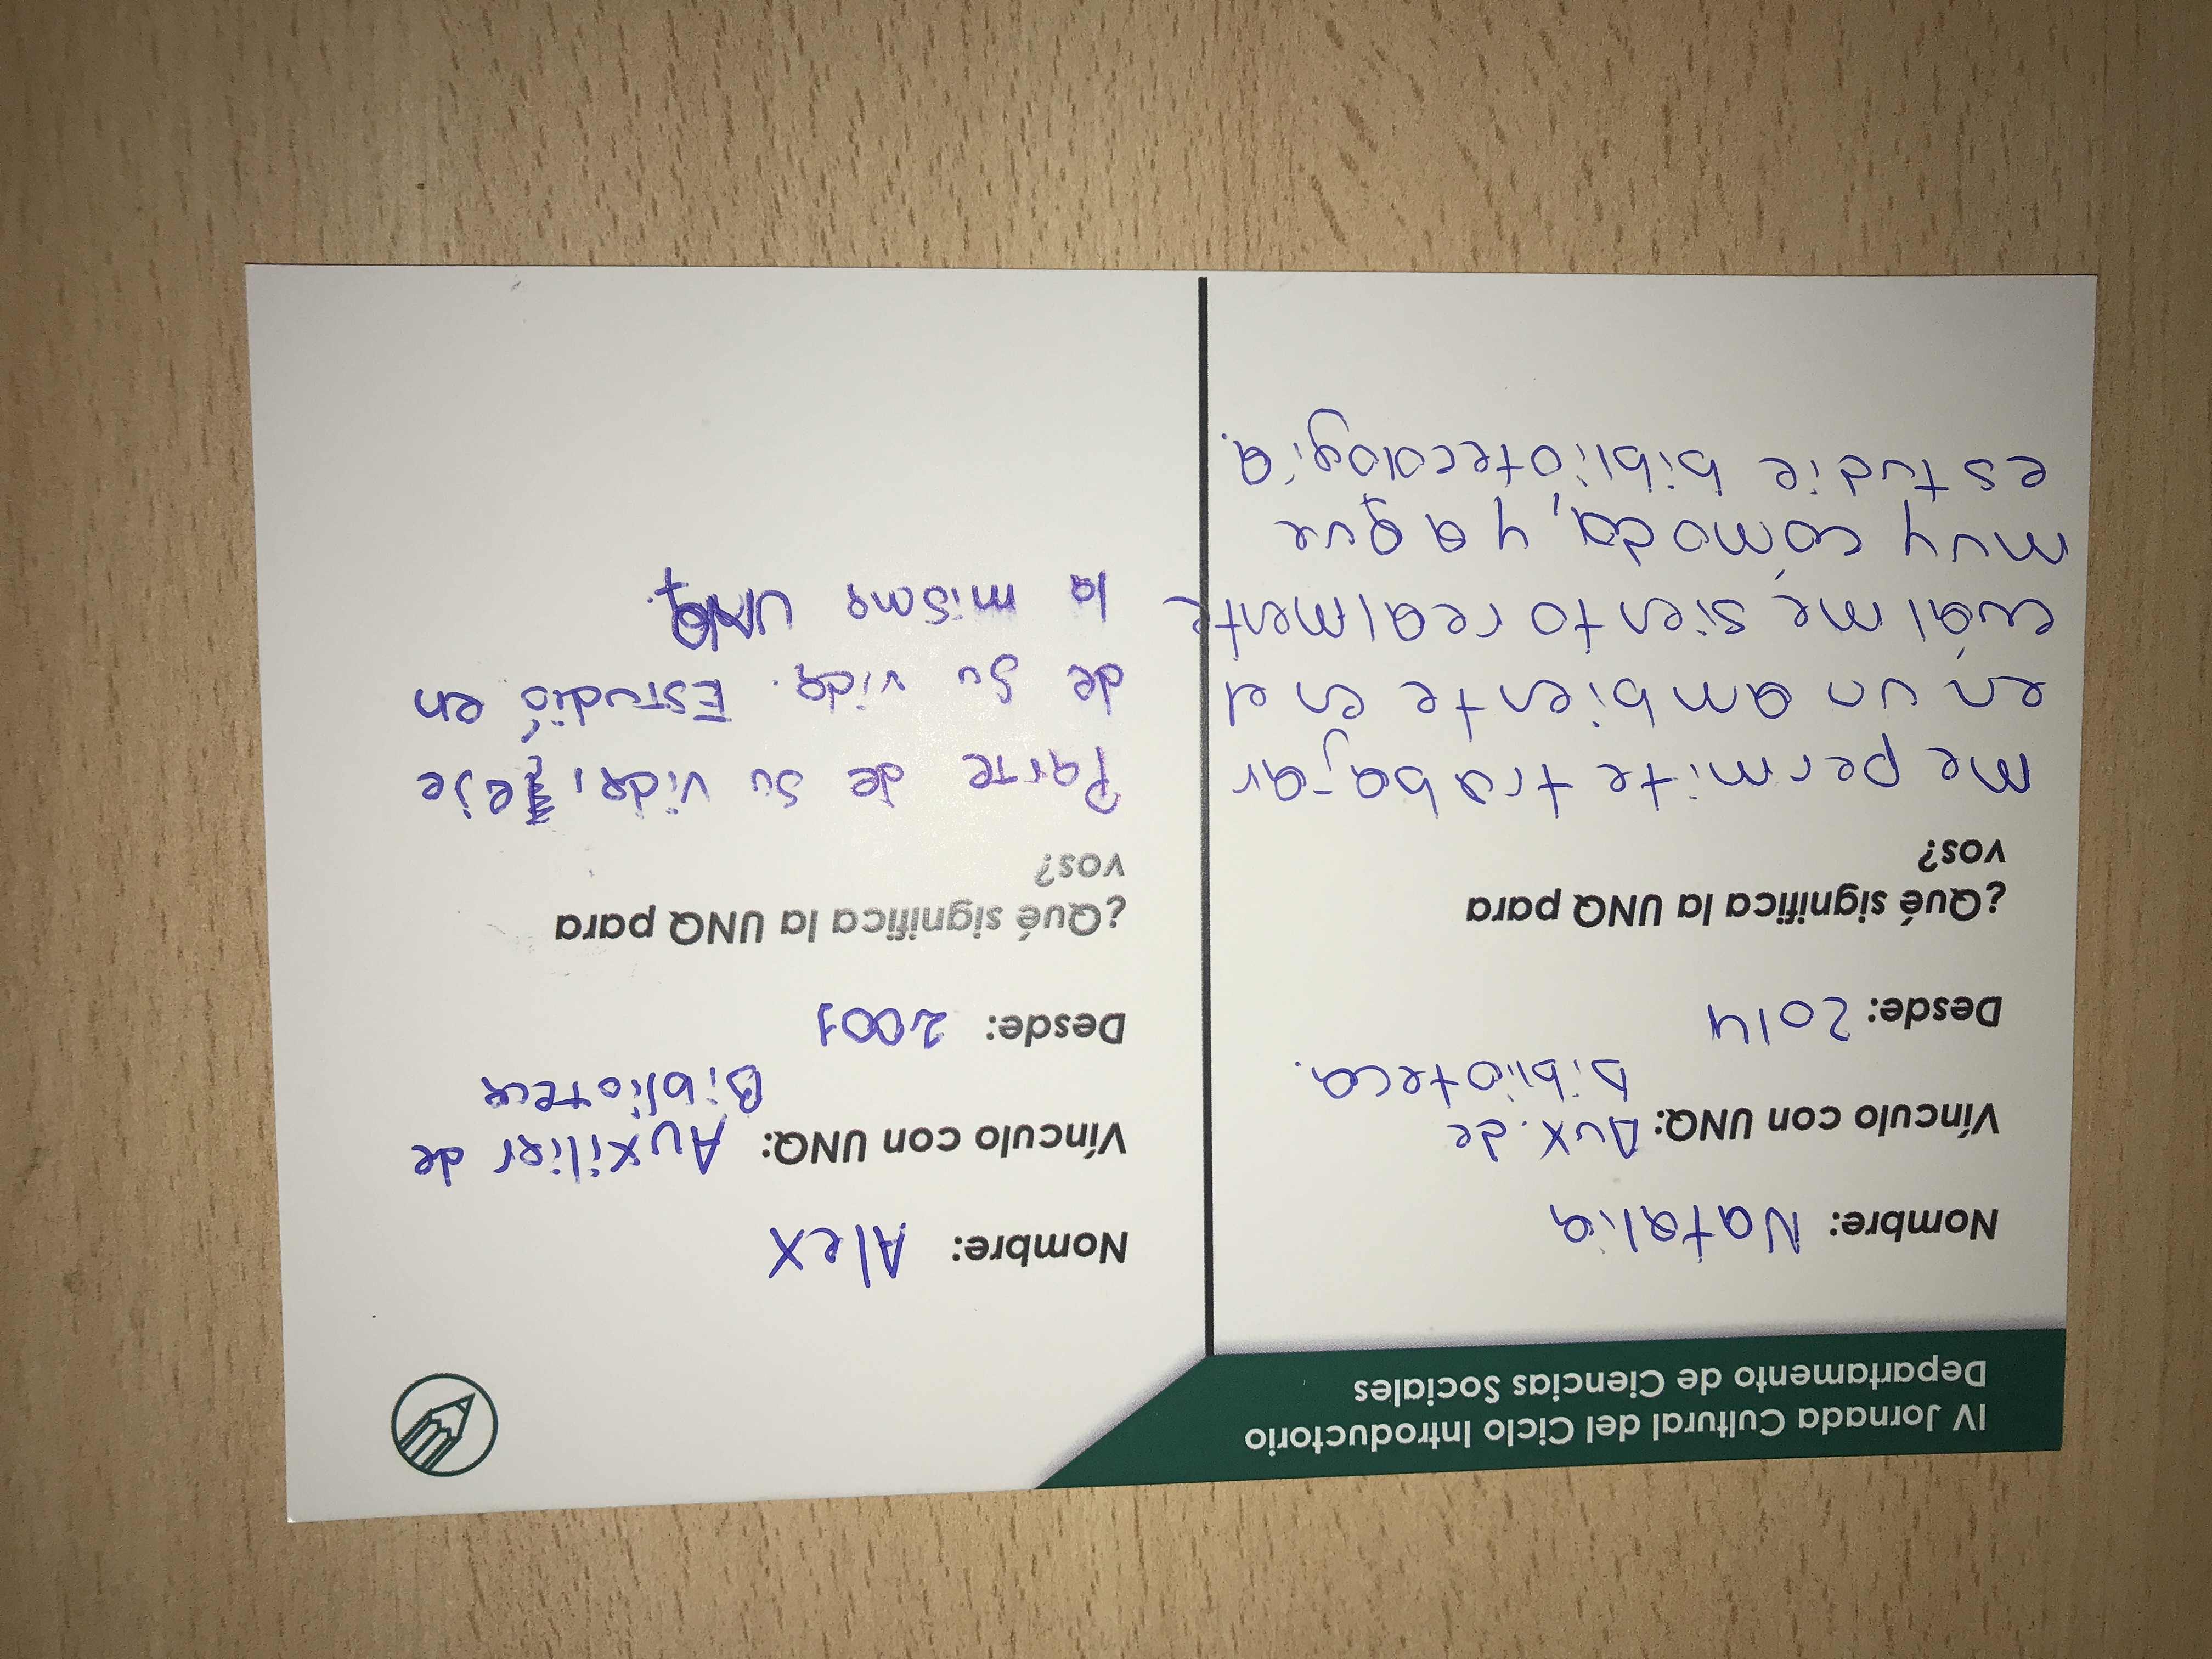 IV Jornada Cultural del Ciclo Introductorio
Departamento de Ciencias Sociales
Nombre: Natalia
Vínculo con UNQ: Aux. de
Biblioteca.
Desde: 2014
¿Qué significa la UNQ para
vos?
me permite trabajar
en un ambiente en el
cuál me siento realmente
muy cómoda, ya que
estudie bibliotecología.
Nombre: Alex
Vínculo con UNQ: Auxiliar de
Biblioteca
Desde: 2001
¿Qué significa la UNQ para
vos?
Parte de su vida, eje
de su vida. Estudió en
la misma UNQ.